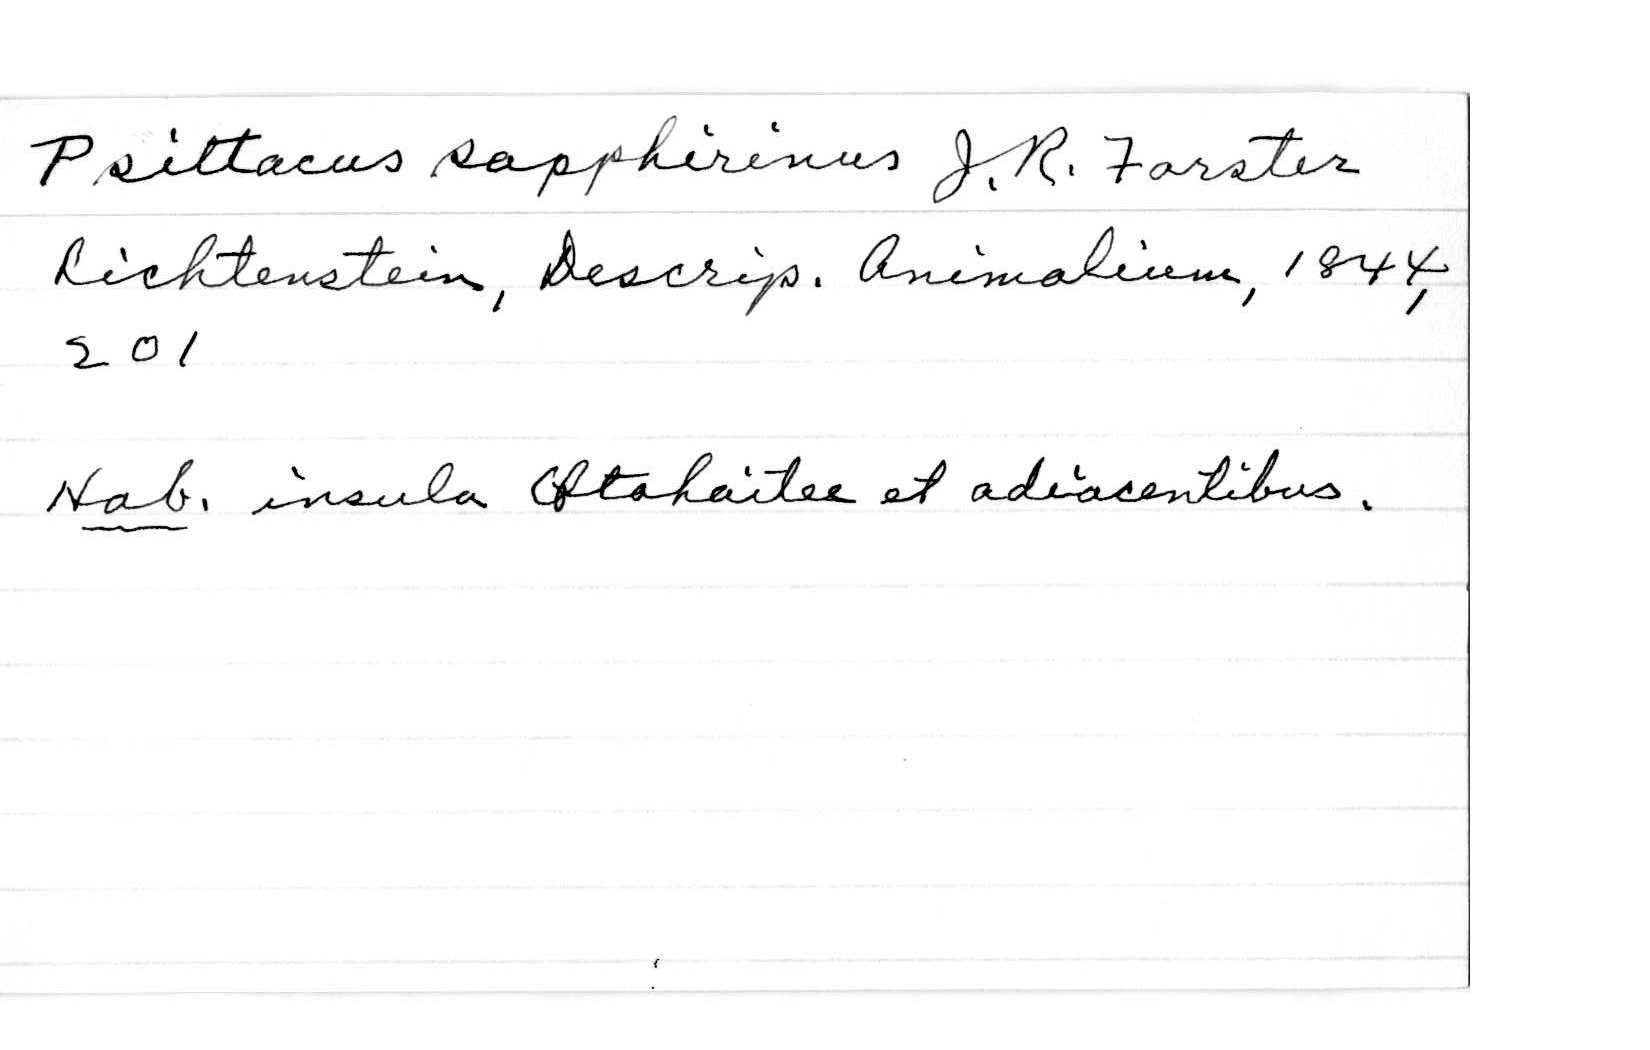 Psittacus sapphirinus J. R. Forster
Lichtenstein, Descrip. Animalium, 1844,
201
Hab. insula Otahaitee et adiacentibus.